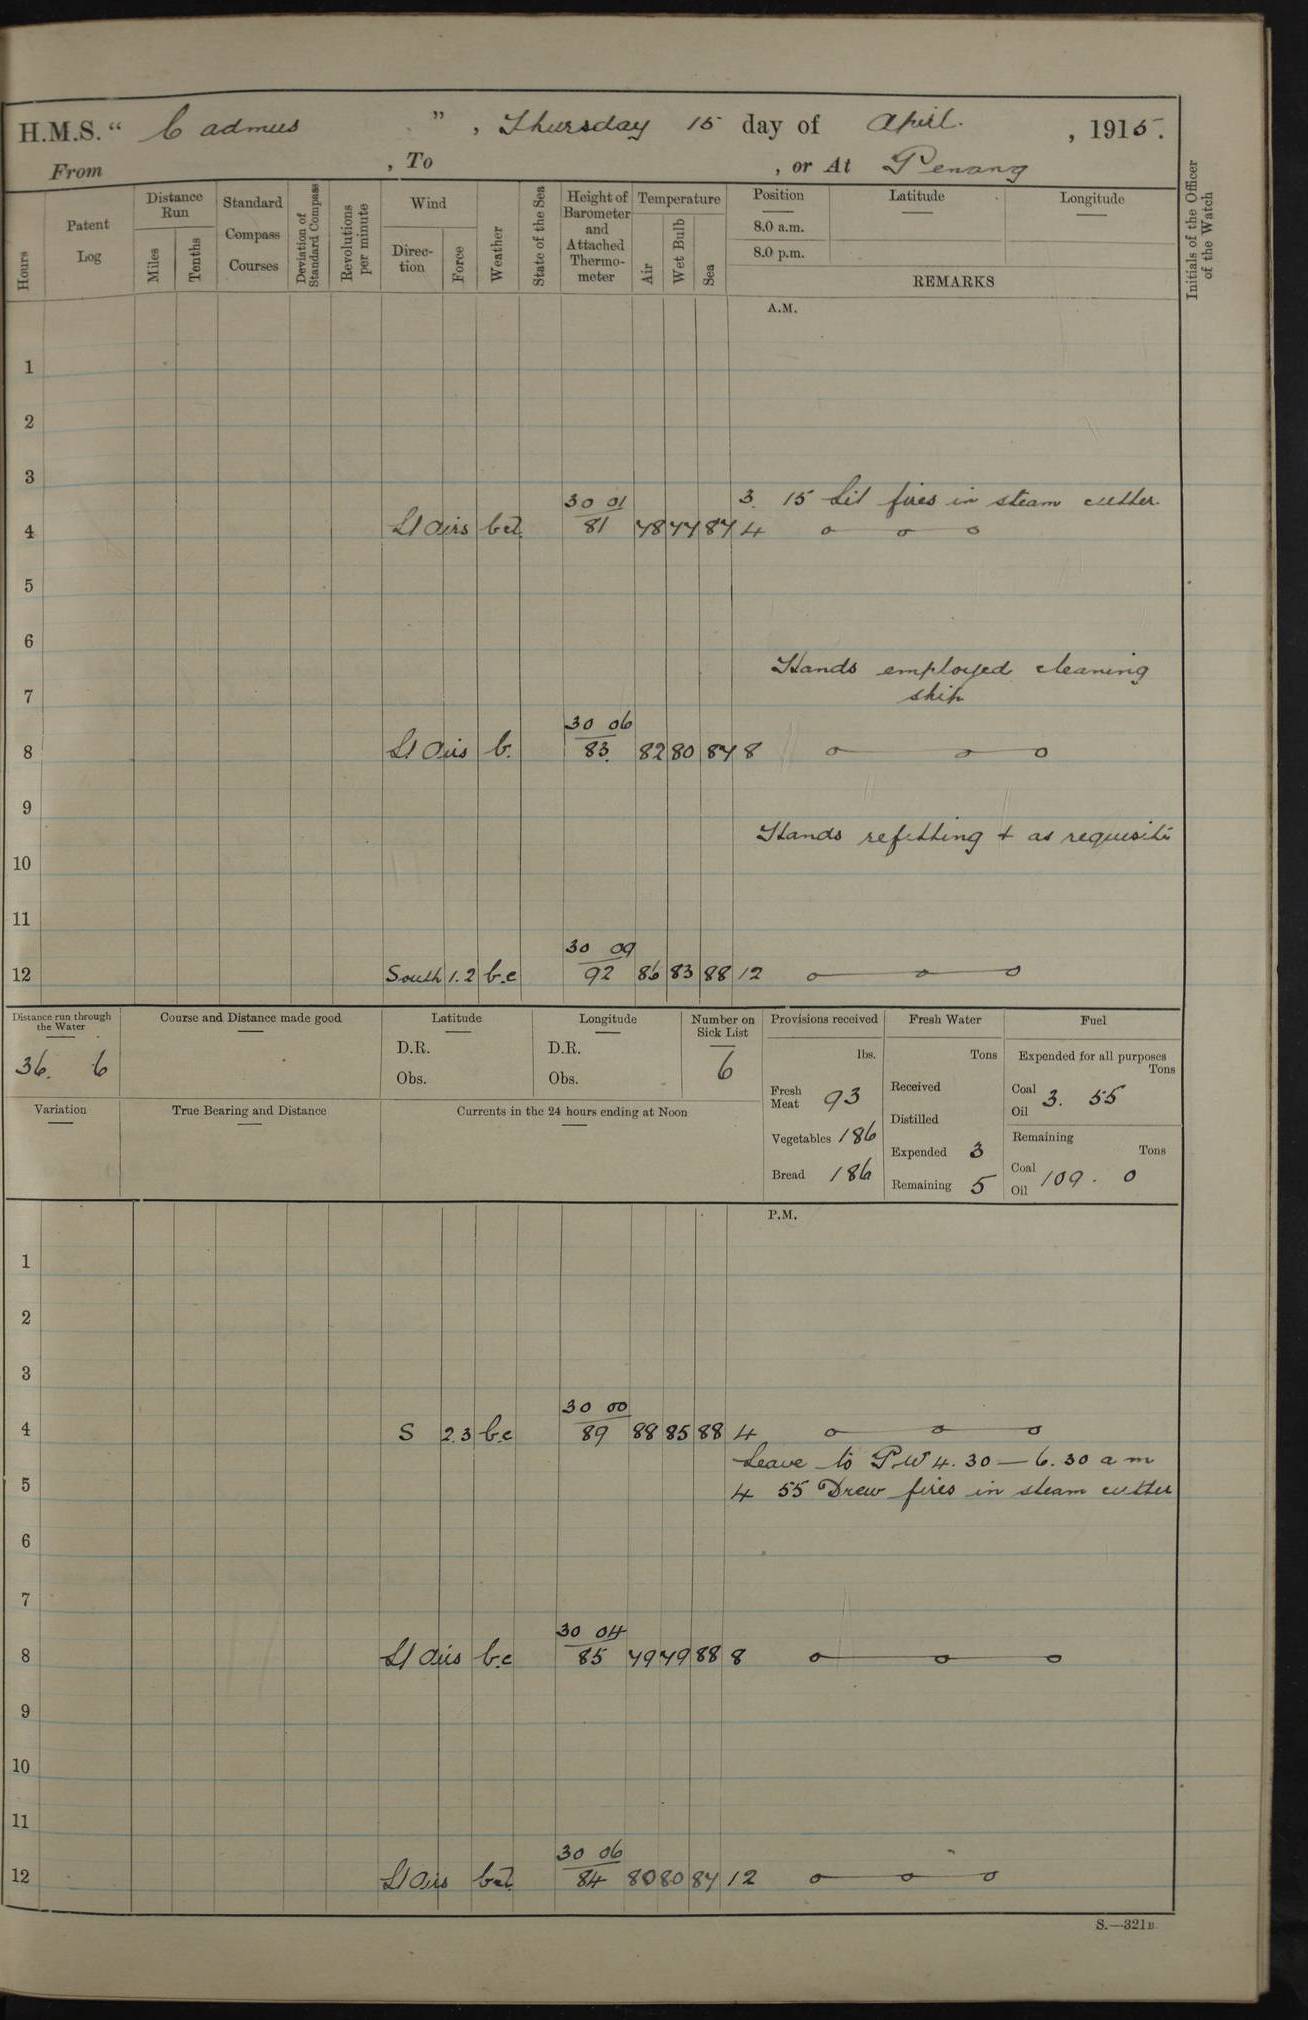 H.M.S. “ Cadmus ” , Thursday 15 day of April. , 1915.
From , To , or At Penang
Hours
Patent Log
Distance Run
Miles
Tenths
Standard Compass Courses
Deviation of Standard Compass
Revolutions per minute
Wind
Direc-tion
Force
Weather
State of the Sea
Height of Barometer and Attached Thermo-meter
Temperature
Air
Wet Bulb
Sea
Position
8.0 a.m.
8.0 p.m.
Latitude
Longitude
REMARKS
Initials of the Officer of the Watch
A.M.
1
2
3
30 01 3. 15 Lit fires in steam cutter.
4 Lt Airs 81 78 77 87 4
5
6
Hands employed cleaning
7 ship
30 06
8 Lt Airs b. 83. 82 80 87 8
9
Hands refitting + as requisite
10
11
30 09
12 South 1.2 b.c 92 86 83 88 12
Distance run through the Water
36. 6
Course and Distance made good
Latitude
D.R.
Obs.
Longitude
D.R.
Obs.
Number on Sick List
6
Provisions received
lbs.
Fresh Meat 93
Vegetables 186
Bread 186
Fresh Water
Tons
Received
Distilled
Expended 3
Remaining 5
Fuel
Expended for all purposes
Tons
Coal
Oil 3. 55
Remaining
Tons
Coal
Oil 109. 0
Variation
True Bearing and Distance
Currents in the 24 hours ending at Noon
P.M.
1
2
3
30 00
4 S 2.3 b.c 89 88 85 88 4
Leave to P.W 4.30 — 6.30 a m
5 4 55 Drew fires in steam cutter
6
7
30 04
8 Lt Airs b.c 85 79 79 88 8
9
10
11
30 06
12 Lt Airs 84 80 80 87 12
S.—321B.